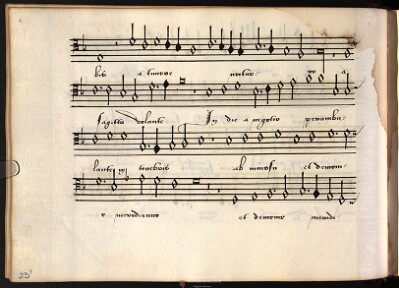 bis a timore noctur
sagitta volante In die a negotio perambu
lante in tenebris ab incursu et demoni
o meridiano et demonio meridi
23v